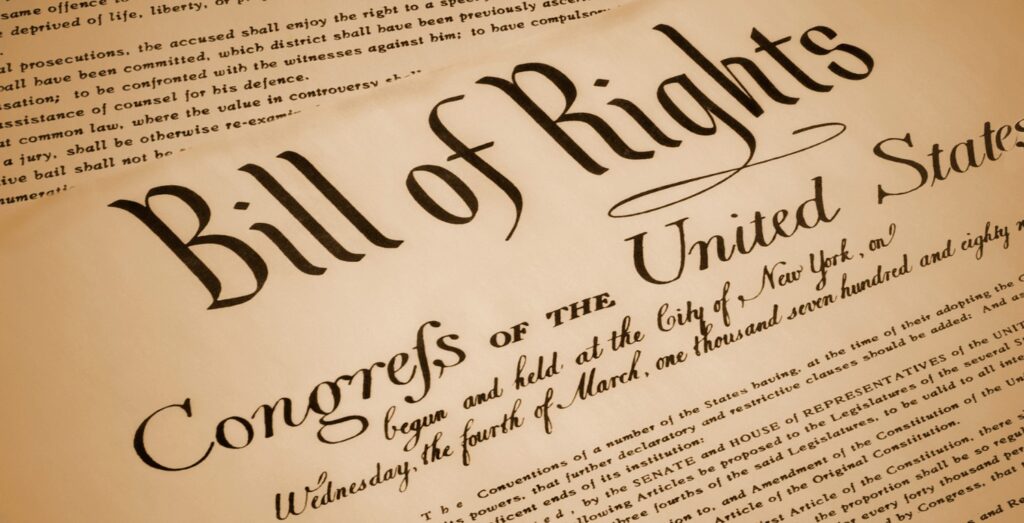 same offence to
deprived of life, liberty, or
al prosecutions, the accused shall enjoy the right to a
all have been committed, which district shall have been previously
sation; to be confronted with the witnesses against him; to have
assistance of counsel for his defence.
at common law, where the value in controversy
a jury, shall be otherwise
ive bail shall not be
Bill of Rights
Congreſs OF THE United States
begun and held at the City of New York, on
Wednesday, the fourth of March, one thousand seven hundred and eighty
The Conventions of a number of the States having, at the time of their adopting the
its powers, that further declaratory and restrictive clauses should be added: And
ficent ends of its institution:
, by the SENATE and HOUSE of REPRESENTATIVES of the
llowing Articles be proposed to the Legislatures of the several
three fourths of the said Legislatures, to be valid to all
to, and Amendment of the Constitution of the
Article of the Original Constitution.
Article of the Constitution, there
the proportion shall be so
every forty thousand
by Congress, that